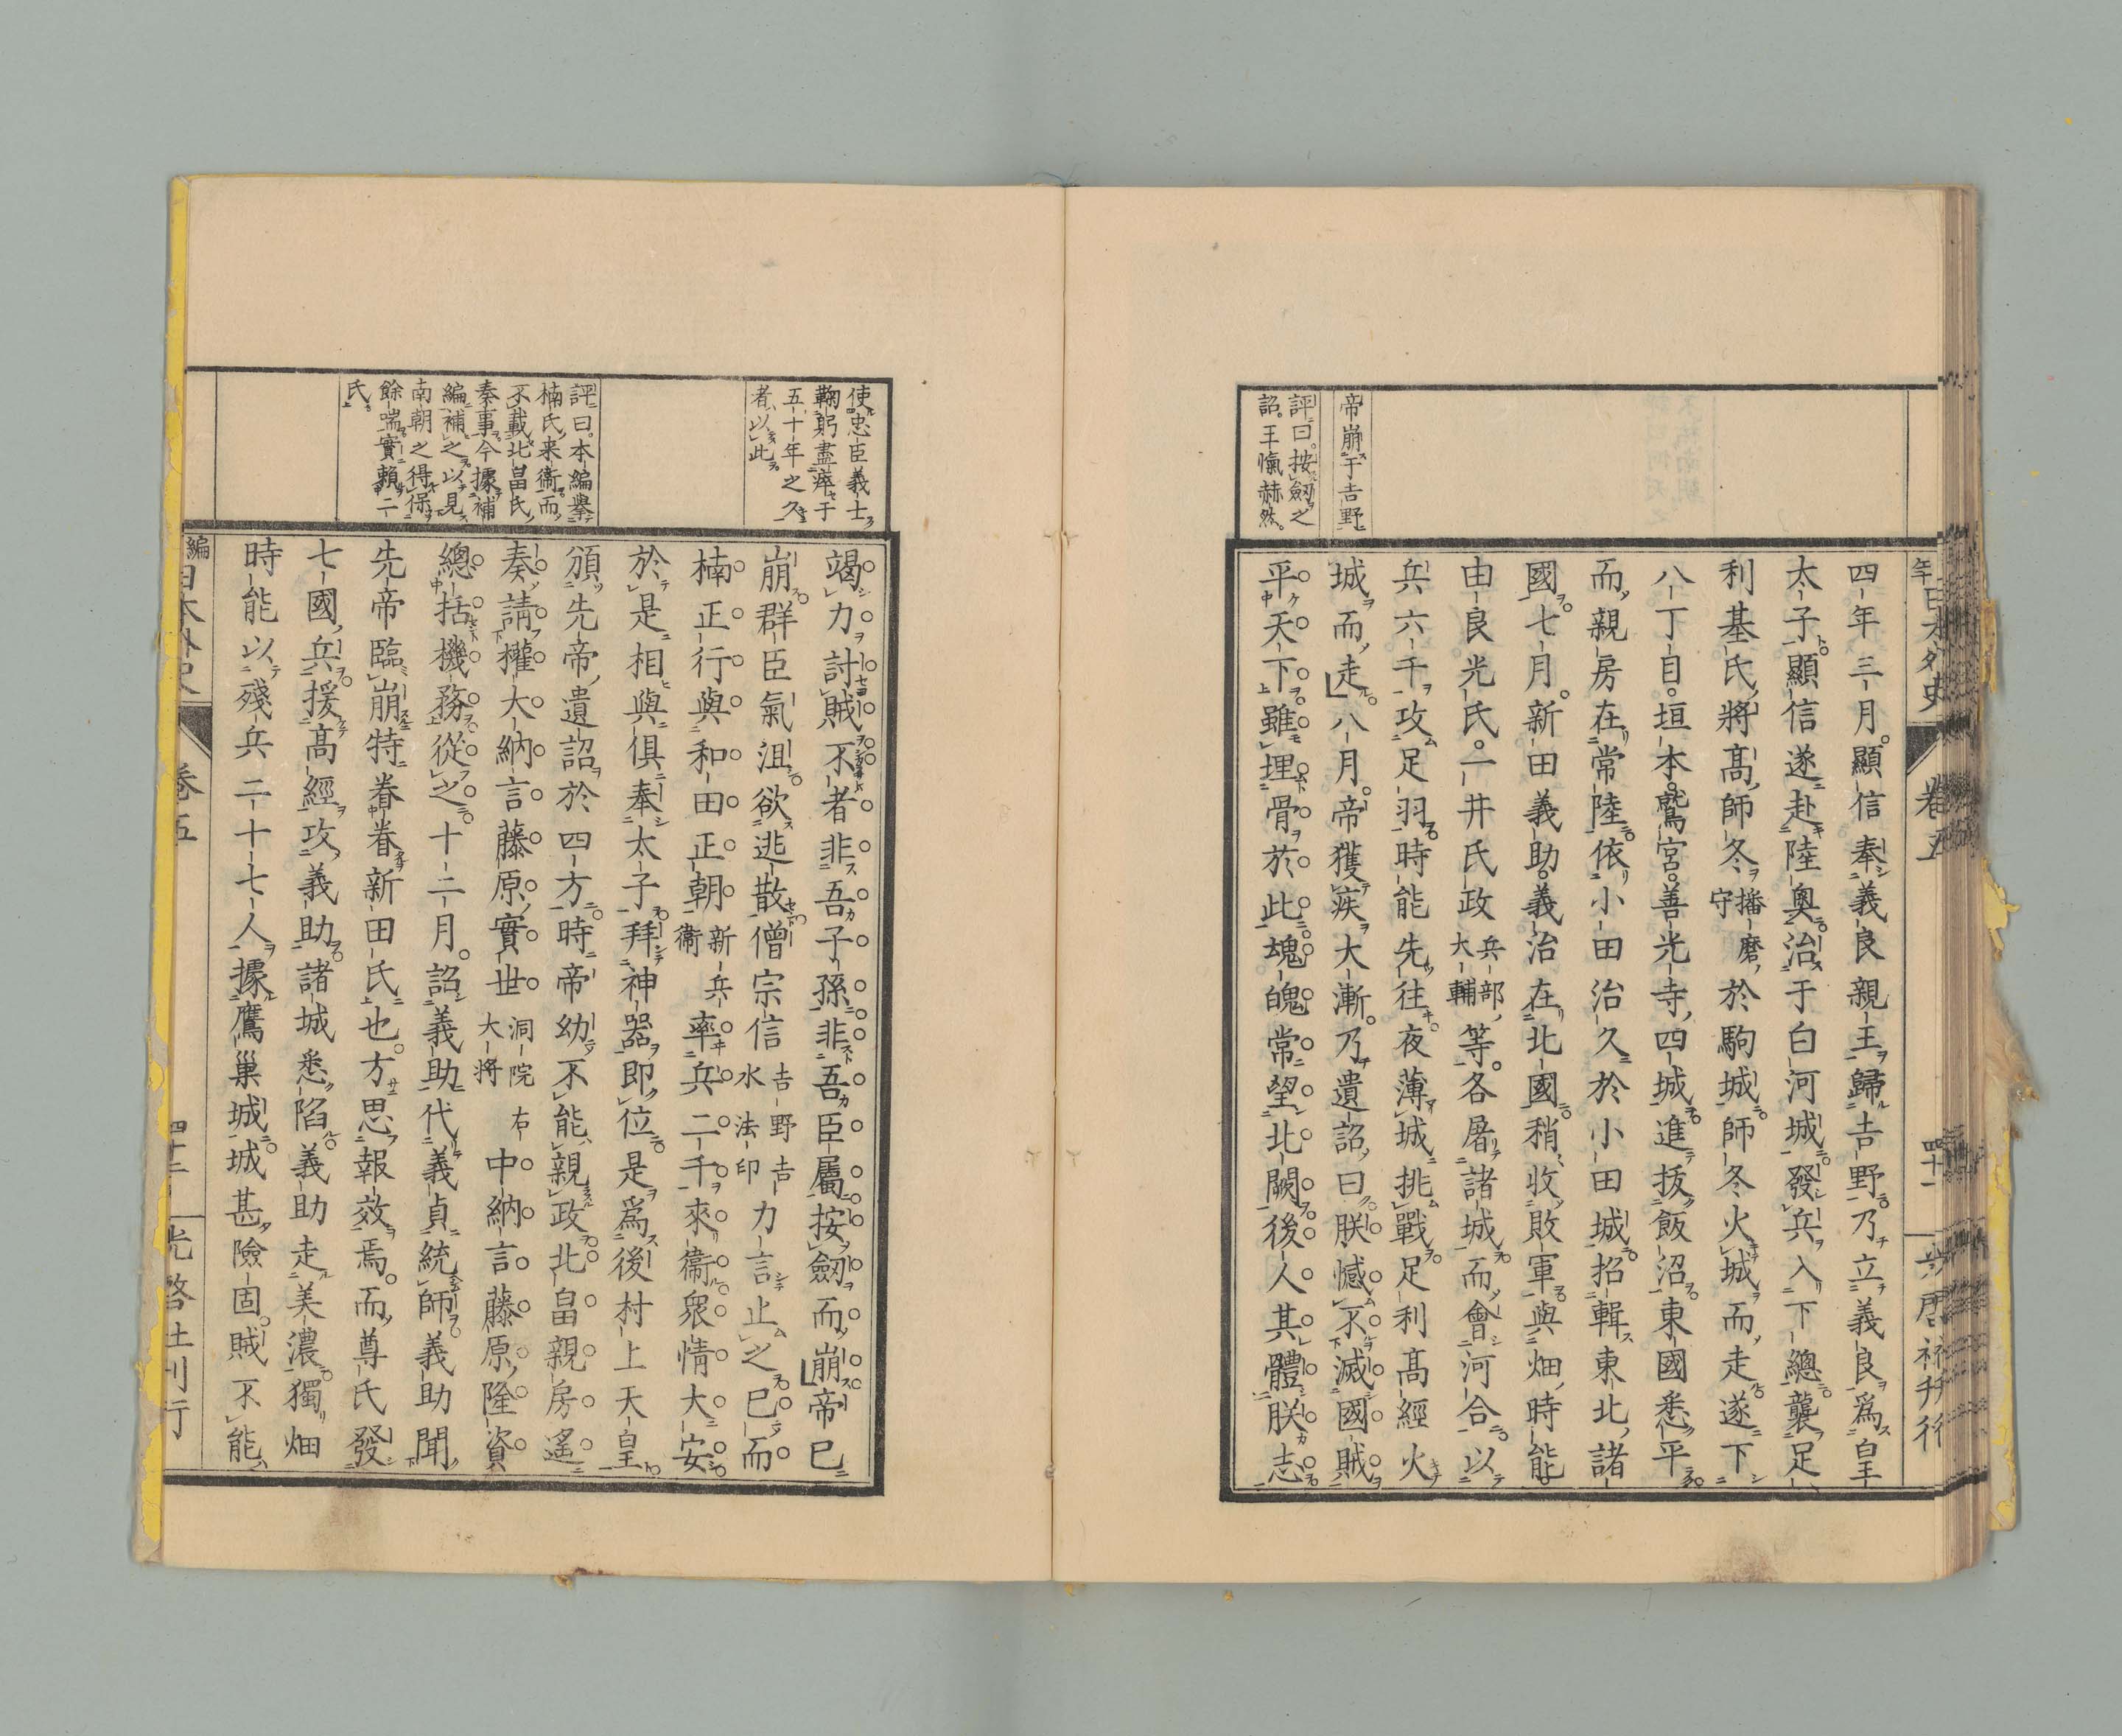 帝崩于吉野
評曰。按劒之
詔。王愾赫然。
四年三月。顯信奉義良親王歸吉野乃立義良爲皇
太子顯信遂赴陸奧治于白河城發兵入下總襲足
利基氏將高師冬播磨守於駒城師冬火城而走遂下
八丁目。垣本。鷲宮。善光寺四城進拔飯沼東國悉平
而親房在常陸依小田治久於小田城招輯東北諸
國。七月。新田義助。義治在北國稍收敗軍與畑時能
由良光氏。一井氏政兵部大輔等。各屠諸城而會河合以
兵六千攻足羽時能先往夜薄城挑戰足利高經火
城而走。八月。帝獲疾大漸。乃遺詔曰朕憾不滅國賊
平天下雖埋骨於此魂魄常望北闕後人其體朕志
使忠臣義士
鞠躬盡瘁于
五十年之久
者以此
評曰。本編擧
楠氏來衞而
不載北畠氏
奏事今據補
編補之以見
南朝之得保
餘喘實賴二
氏
竭力討賊不者非吾子孫非吾臣屬按劒而崩帝已
崩群臣氣沮欲逃散僧宗信吉野吉水法印力言止之已而
楠正行與和田正朝新兵衞率兵二千來衞衆情大安
於是相與俱奉太子拜神器即位是爲後村上天皇
頒先帝遺詔於四方時帝幼不能親政北畠親房遙
奏請權大納言藤原實世洞院右大將中納言藤原隆資
總括機務從之十二月。詔義助代義貞統師義助聞
先帝臨崩特眷眷新田氏也。方思報效焉。而尊氏發
七國兵援高經攻義助諸城悉陷義助走美濃獨畑
時能以殘兵二十七人據鷹巢城城甚險固。賊不能
編日本外史 卷五 四十二 光啓社刊行